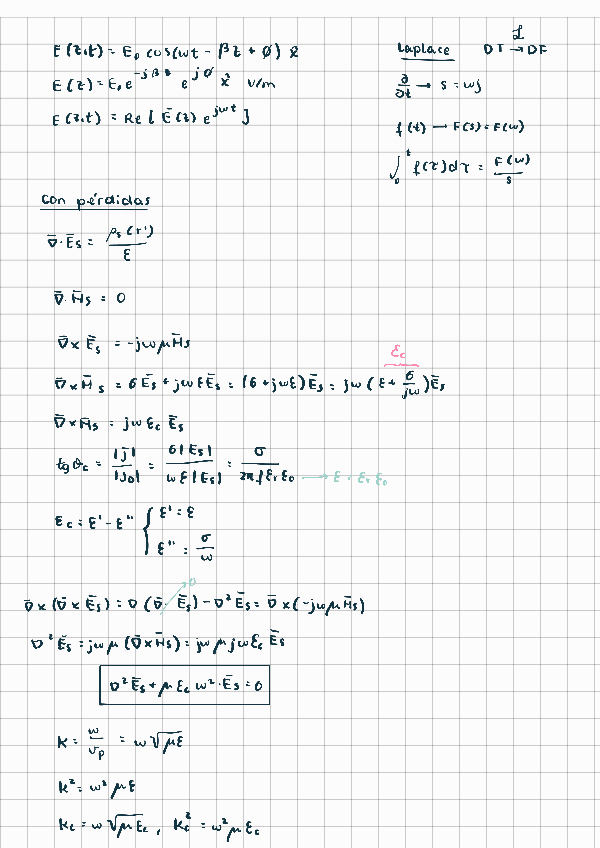 E(z,t) = E₀ cos(ωt - βz + ϕ) x̂
E(z) = E₀ e^{-jβz} e^{jϕ} x̂ V/m
E(z,t) = Re[ Ē(z) e^{jωt} ]
Laplace DT →^ℒ DF
∂/∂t → s = ωj
f(t) → F(s) = F(ω)
∫₀ᵗ f(τ)dτ = F(ω)/s
Con pérdidas
∇̄·Ēs = ρs(r')/ε
∇̄·H̄s = 0
∇̄×Ēs = -jωμH̄s
εc
∇̄×H̄s = σĒs + jωεĒs = (σ+jωε)Ēs = jω(ε + σ/jω)Ēs
∇̄×H̄s = jωεc Ēs
tgθc = |J̄|/|J̄D| = σ|Ēs|/ωε|Ēs| = σ/2πfεrε₀ → ε = εrε₀
εc = ε' - ε'' { ε' = ε
ε'' = σ/ω
∇̄×(∇̄×Ēs) = ∇(∇̄·Ēs)→0 - ∇²Ēs = ∇̄×(-jωμH̄s)
∇²Ēs = jωμ(∇̄×H̄s) = jωμjωεc Ēs
∇²Ēs + μεcω²·Ēs = 0
K = ω/vp = ω√με
K² = ω²με
Kc = ω√μεc , Kc² = ω²μεc